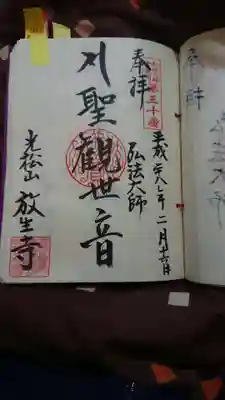 奉拝
第三十番
平成二八年二月十六日
弘法大師
聖觀世音
光松山 放生寺
奉拝
弘法大師